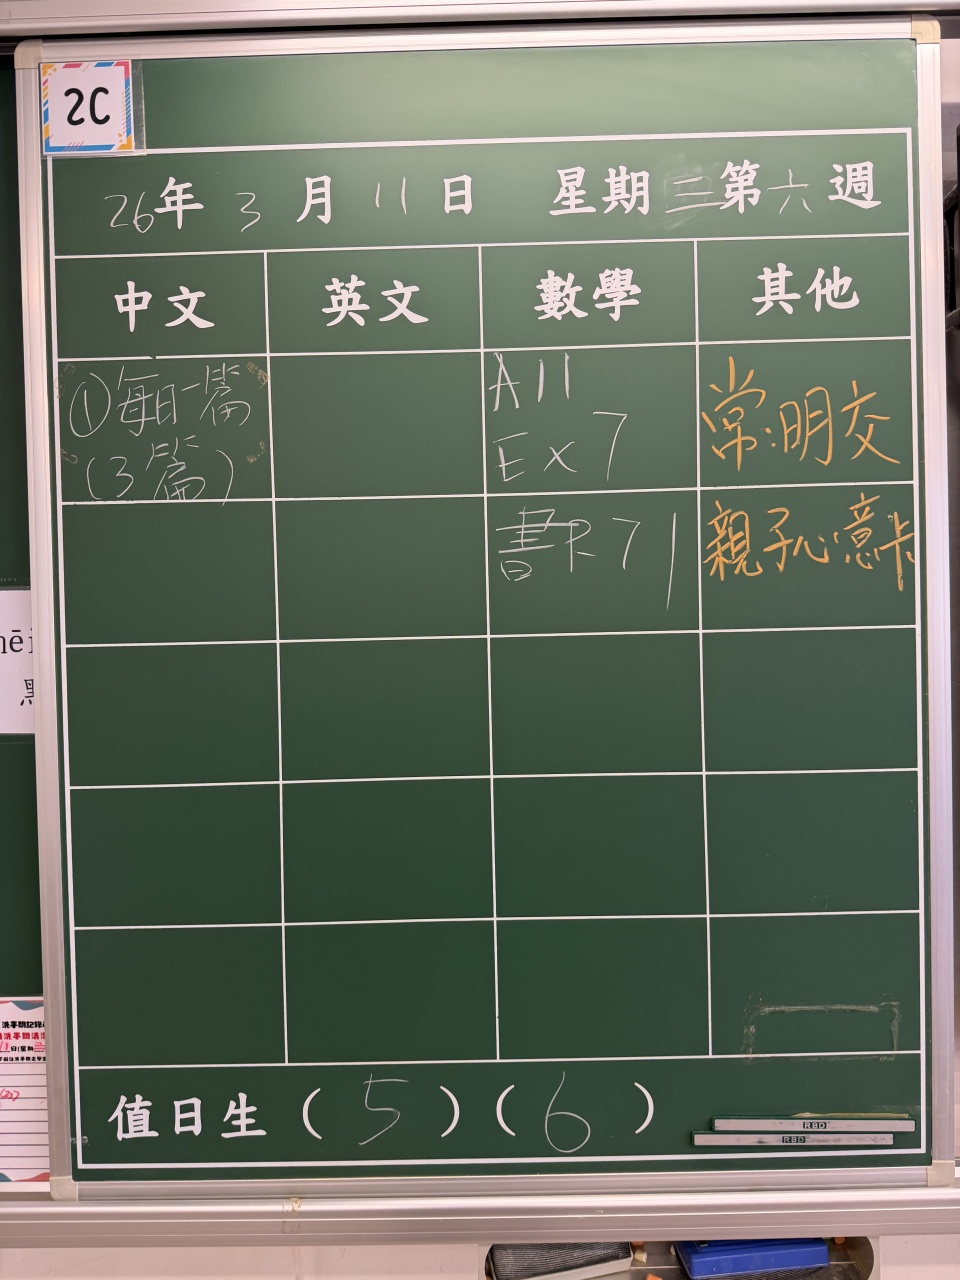 2C
26年3月11日 星期三第六週
中文 英文 數學 其他
①每日一篇
(3篇)
A11
Ex 7
常:明交
書P.71
親子心意卡
值日生(5)(6)
RBD
RBD